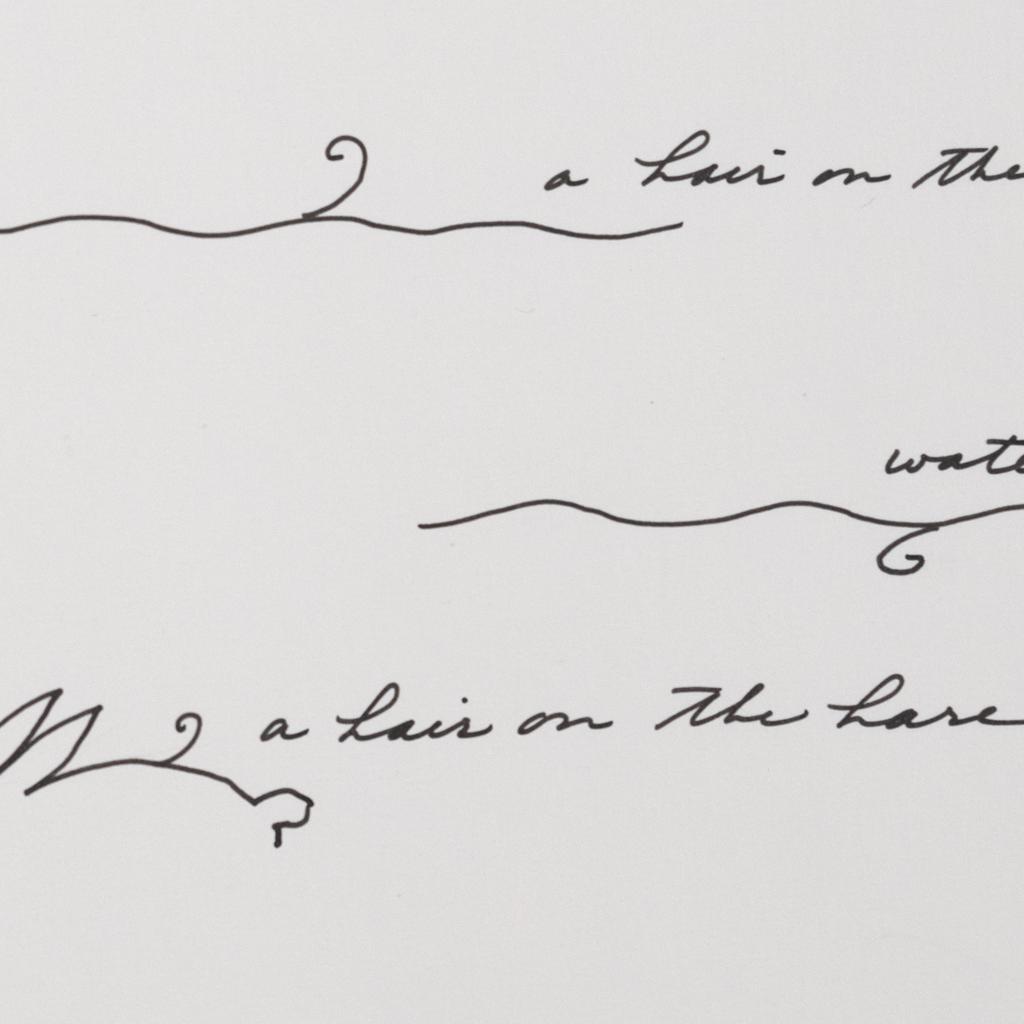 a hair on the
wate
a hair on the hare